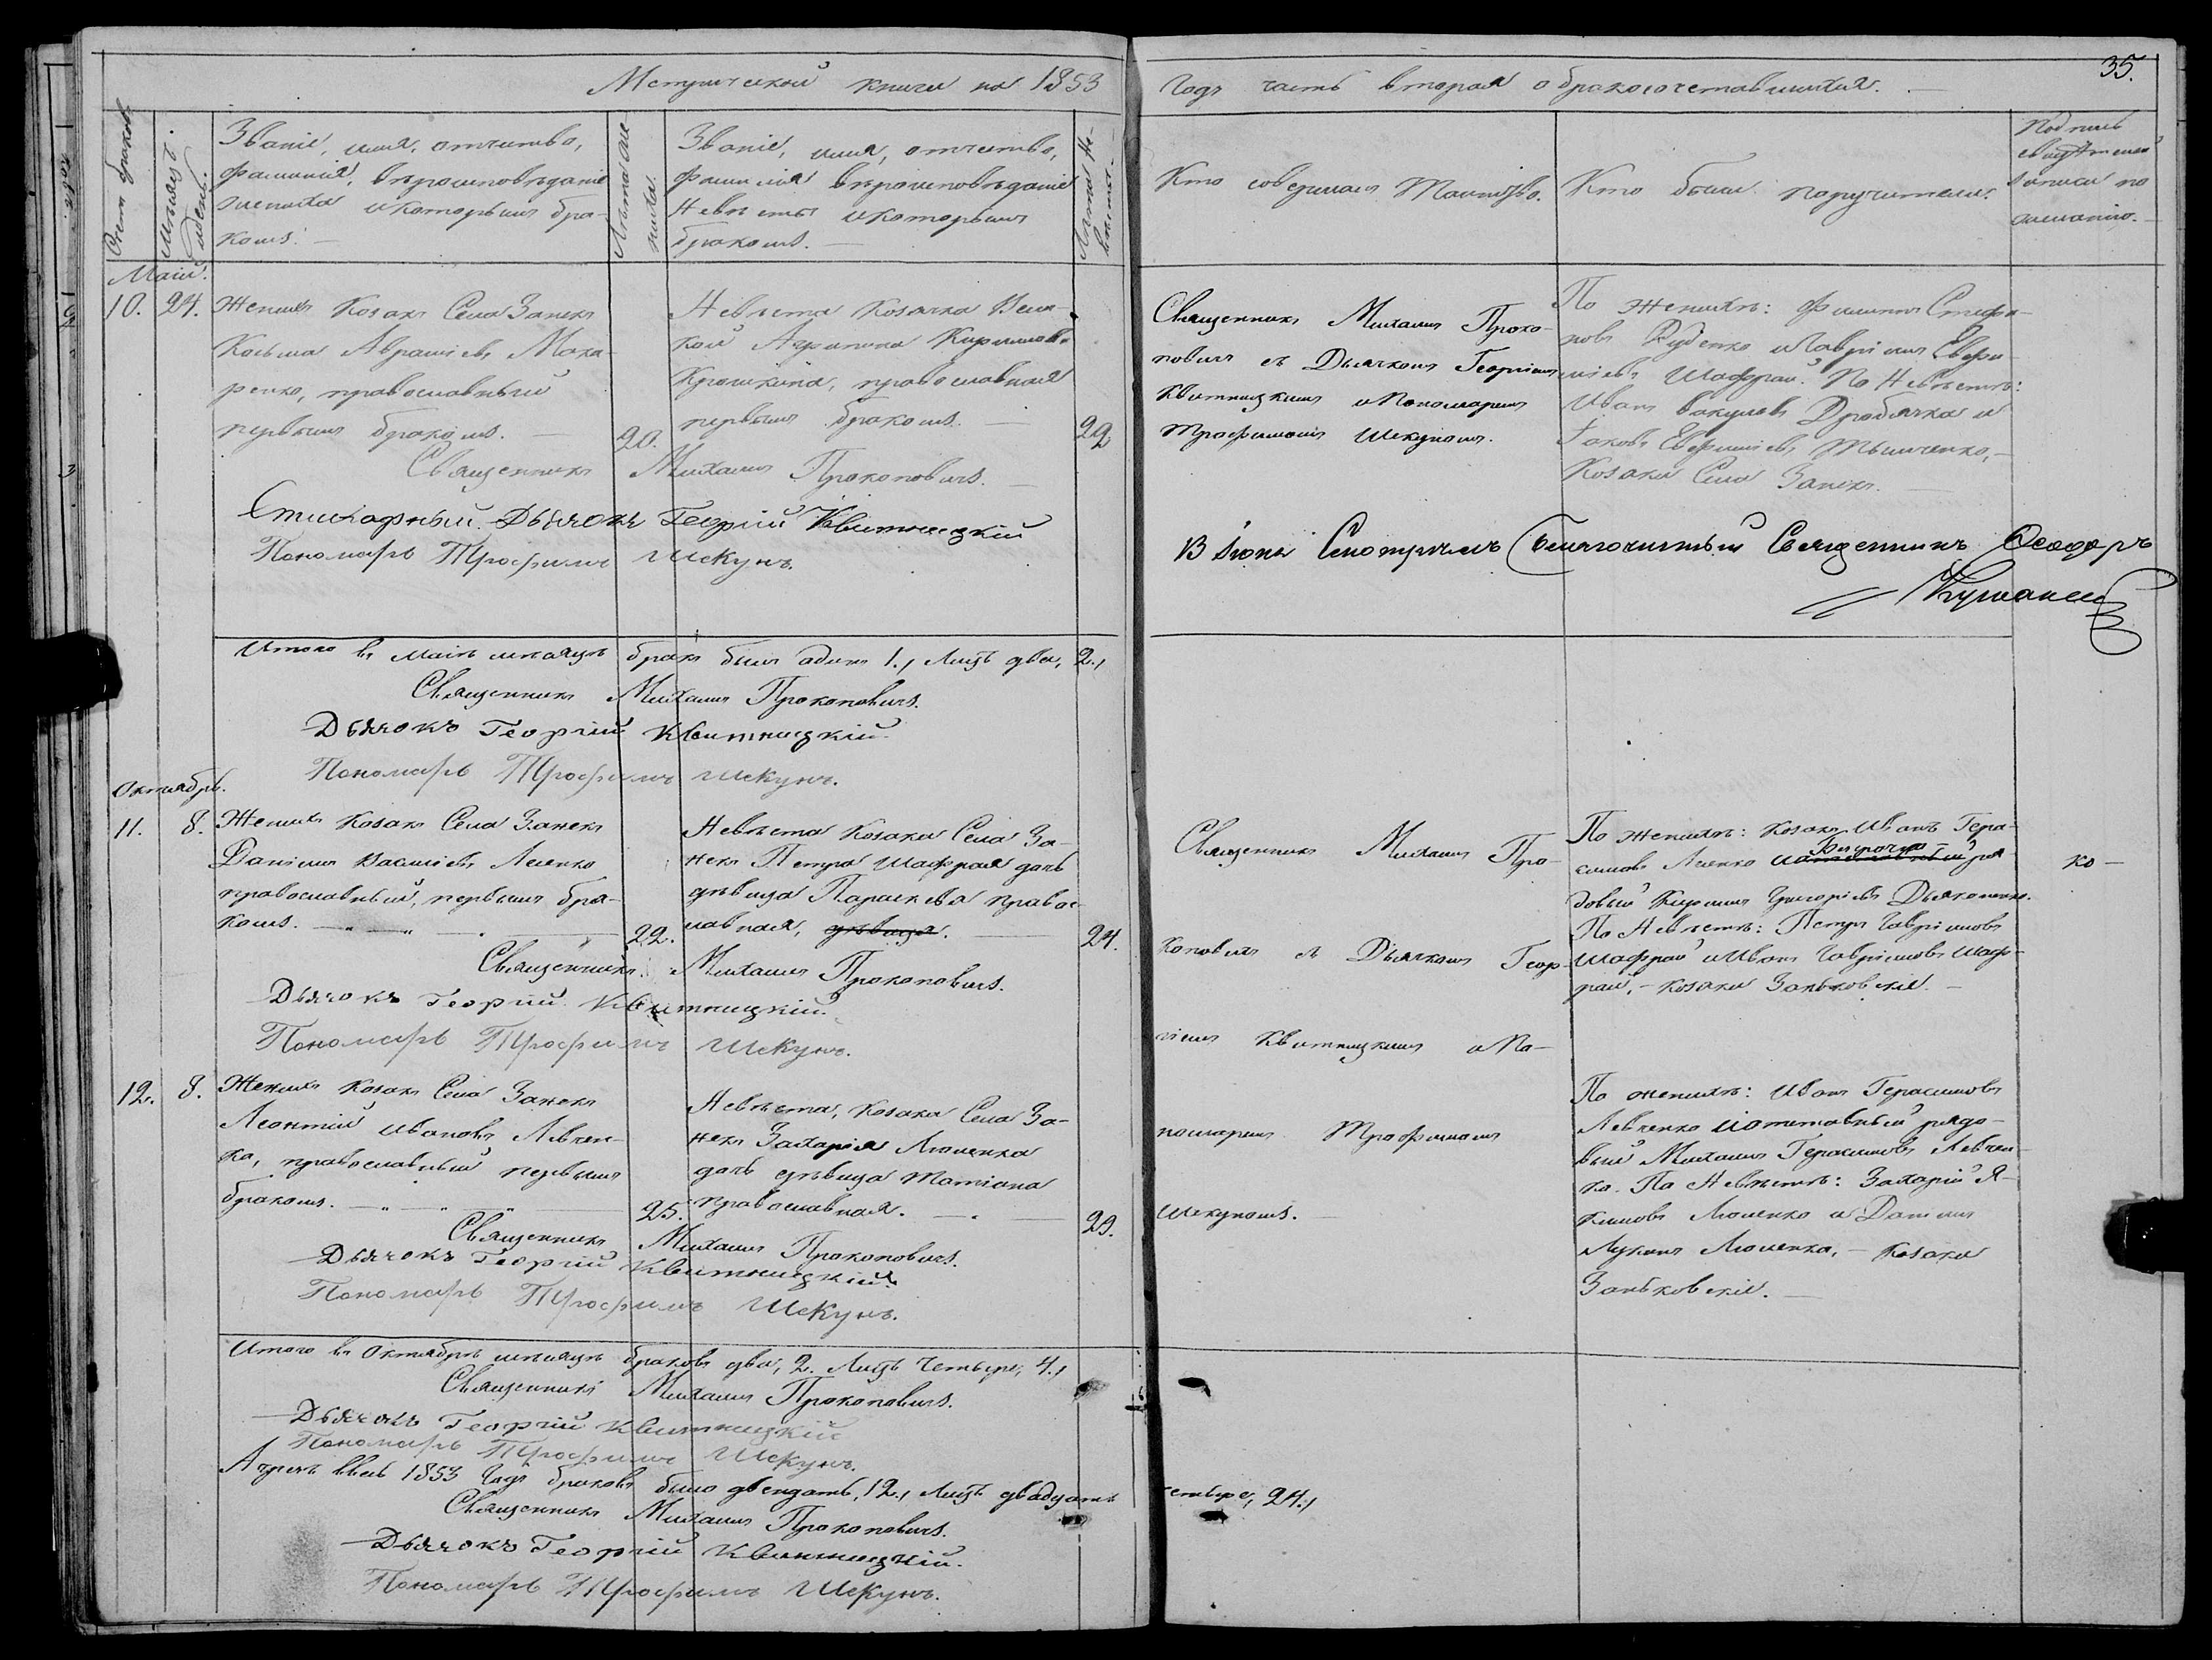 Метрической книги на 1853
Годъ часть вторая о бракосочетавшихся.
35.
Счетъ браковъ.
Мѣсяцъ и день.
Званіе, имя, отчество,
фамилія, вѣроисповѣданіе
жениха и которымъ бра-
комъ.
Лѣта же-
ниха.
Званіе, имя, отчество,
фамилія вѣроисповѣданіе
Невѣсты и которымъ
бракомъ.
Лѣта Не-
вѣсты.
Кто совершалъ Таинство.
Кто были поручители.
Подпись
свидѣтелей
записи по
желанію.
Маій.
10. 24. Женихъ Козакъ Села Занекъ
Косьма Авраміевъ Мака-
ренко, православный
первымъ бракомъ.
20.
Невѣста Козачка
Агрипина Кирилова
Крошкина, православная
первымъ бракомъ.
22
Священникъ Михаилъ Проко-
повичъ съ Дьячкомъ Георгіемъ
Квитницкимъ и Пономаремъ
Трофимомъ Шекуномъ.
По женихѣ: Филипъ Стефа-
новъ Руденко и Гавріилъ Евфи-
міевъ Шафрай. По Невѣстѣ:
Иванъ Вакуловъ Дробячка и
Іаковъ Евфиміевъ Тымченко,
Козаки Села Занекъ.
Священникъ Михаилъ Прокоповичъ.
Стихарный Дьячокъ Георгій Квитницкій
Пономарь Трофимъ Шекунъ.
13 Іюня Смотрѣлъ Благочинный Священникъ Ѳеодоръ
Итого въ Маіѣ мѣсяцѣ бракъ былъ одинъ 1., Лицъ два, 2.,
Священникъ Михаилъ Прокоповичъ.
Дьячокъ Георгій Квитницкій.
Пономарь Трофимъ Шекунъ.
Октябрь.
11. 8. Женихъ Козакъ Села Занекъ
Даніилъ Васильевъ Ляшенко
православный, первымъ бра-
комъ.
22.
Невѣста Козака Села За-
некъ Петра Шафрая дочь
дѣвица Параскева правос-
лавная, дѣвица.
24.
Священникъ Михаилъ Про-
коповичъ съ Дьячкомъ Геор-
гіемъ Квитницкимъ и По-
номаремъ Трофимомъ
Шекуномъ.
По женихѣ: Козакъ Иванъ Гера-
симовъ
довый Кирилъ Григорьевъ Дьяконенко.
По Невѣстѣ: Петръ Гавріиловъ
Шафрай и Иванъ Гавріиловъ Шаф-
рай, - козаки Заньковскіе.
Священникъ Михаилъ Прокоповичъ.
Дьячокъ Георгій Квитницкій.
Пономарь Трофимъ Шекунъ.
12. 8. Женихъ Козакъ Села Занекъ
Леонтій Ивановъ Левчен-
ко, православный первымъ
бракомъ.
25.
Невѣста, Козака Села За-
некъ Захарія Люленка
дочь дѣвица Татіана
православная.
23.
По женихѣ: Иванъ Герасимовъ
Левченко и отставный рядо-
вый Михаилъ Герасимовъ Левчен-
ко. По Невѣстѣ: Захарій Я-
кимовъ Люленко и Даніилъ
Лукинъ Люленко, - козаки
Заньковскіе.
Священникъ Михаилъ Прокоповичъ.
Дьячокъ Георгій Квитницкій.
Пономарь Трофимъ Шекунъ.
Итого въ Октябрѣ мѣсяцѣ браковъ два, 2. Лицъ Четыре, 4.,
Священникъ Михаилъ Прокоповичъ.
Дьячокъ Георгій Квитницкій
Пономарь Трофимъ Шекунъ.
А чрезъ весь 1853 Годъ браковъ было двенадцать, 12., Лицъ двадцать четыре, 24.,
Священникъ Михаилъ Прокоповичъ.
Дьячокъ Георгій Квитницкій.
Пономарь Трофимъ Шекунъ.